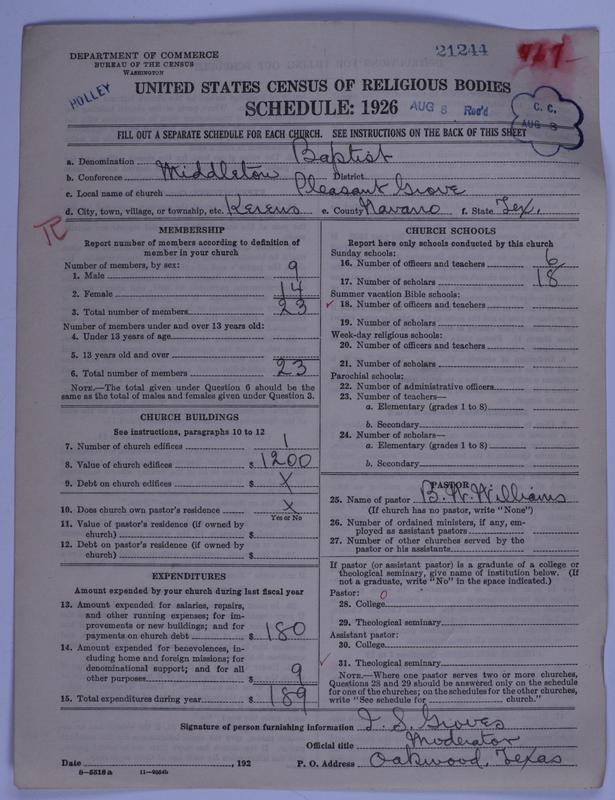 DEPARTMENT OF COMMERCE
BUREAU OF THE CENSUS
WASHINGTON
21244
HOLLEY
UNITED STATES CENSUS OF RELIGIOUS BODIES
SCHEDULE: 1926
AUG 8 Rec'd
C. C.
AUG 8
FILL OUT A SEPARATE SCHEDULE FOR EACH CHURCH. SEE INSTRUCTIONS ON THE BACK OF THIS SHEET
a. Denomination Baptist
b. Conference Middleton District
c. Local name of church Pleasant Grove
d. City, town, village, or township, etc. Kerens e. County Navarro f. State Tex.
MEMBERSHIP
Report number of members according to definition of member in your church
Number of members, by sex:
1. Male 9
2. Female 14
3. Total number of members 23
Number of members under and over 13 years old:
4. Under 13 years of age
5. 13 years old and over
6. Total number of members 23
NOTE.—The total given under Question 6 should be the
same as the total of males and females given under Question 3.
CHURCH BUILDINGS
See instructions, paragraphs 10 to 12
7. Number of church edifices 1
8. Value of church edifices $ 1200
9. Debt on church edifices $ X
10. Does church own pastor's residence X
Yes or No
11. Value of pastor's residence (if owned by
church) $
12. Debt on pastor's residence (if owned by
church) $
EXPENDITURES
Amount expended by your church during last fiscal year
13. Amount expended for salaries, repairs,
and other running expenses; for im-
provements or new buildings; and for
payments on church debt $ 180
14. Amount expended for benevolences, in-
cluding home and foreign missions; for
denominational support; and for all
other purposes $ 9
15. Total expenditures during year $ 189
CHURCH SCHOOLS
Report here only schools conducted by this church
Sunday schools:
16. Number of officers and teachers 6
17. Number of scholars 18
Summer vacation Bible schools:
18. Number of officers and teachers
19. Number of scholars
Week-day religious schools:
20. Number of officers and teachers
21. Number of scholars
Parochial schools:
22. Number of administrative officers
23. Number of teachers—
a. Elementary (grades 1 to 8)
b. Secondary
24. Number of scholars—
a. Elementary (grades 1 to 8)
b. Secondary
PASTOR
25. Name of pastor B. W. Williams
(If church has no pastor, write "None")
26. Number of ordained ministers, if any, em-
ployed as assistant pastors
27. Number of other churches served by the
pastor or his assistants
If pastor (or assistant pastor) is a graduate of a college or
theological seminary, give name of institution below. (If
not a graduate, write "No" in the space indicated.)
Pastor: 0
28. College
29. Theological seminary
Assistant pastor:
30. College
31. Theological seminary
NOTE.—Where one pastor serves two or more churches,
Questions 28 and 29 should be answered only on the schedule
for one of the churches; on the schedules for the other churches,
write "See schedule for church."
Signature of person furnishing information J. S. Groves
Official title Moderator
Date , 192 P. O. Address Oakwood, Texas
8-5518a 11-9554b